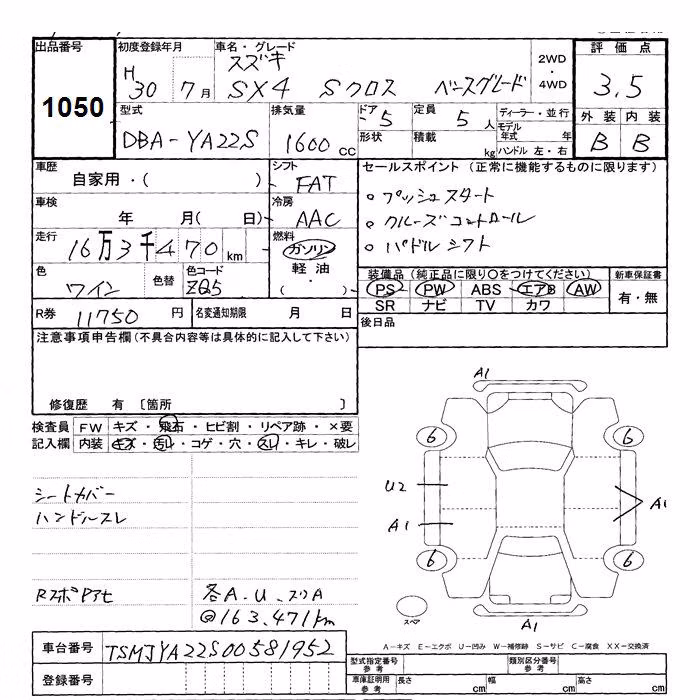 出品番号 初度登録年月 車名・グレード 評価点
1050 H30 7月 スズキ
SX4 Sクロス ベースグレード 2WD・4WD 3.5
型式 排気量 ドア 定員 ディーラー・並行 外装 内装
DBA-YA22S 1600cc -5 5人 モデル年式 年 B B
形状 積載 kg ハンドル 左・右
車歴 シフト セールスポイント (正常に機能するものに限ります)
自家用・( ) FAT 。プッシュスタート
車検 冷房 。クルーズコントロール
年 月( 日) AAC 。パドルシフト
走行 16万3千470km 燃料 ガソリン
軽油
( )
色 色替 色コード
ワイン ZQ5
装備品 (純正品に限り○をつけてください) 新車保証書
PS PW ABS エアB AW 有・無
SR ナビ TV カワ
R券 11750円 名変通知期限 月 日 後日品
注意事項申告欄(不具合内容等は具体的に記入して下さい)
修復歴 有 〔箇所 〕
検査員 FW キズ・飛石・ヒビ割・リペア跡・×要
記入欄 内装 キズ・汚れ・コゲ・穴・スレ・キレ・破レ
シートカバー
ハンドルスレ
各A.U.スリA
@163.471km
A1
6 6
U2
A1 A1
6 6
スペア
A1
A-キズ E-エクボ U-凹み W-補修跡 S-サビ C-腐食 XX-交換済
車台番号 TSMJYA22S00581952
登録番号
型式指定番号 参考 類別区分番号 参考
車庫証明用 参考 長さ cm 幅 cm 高さ cm